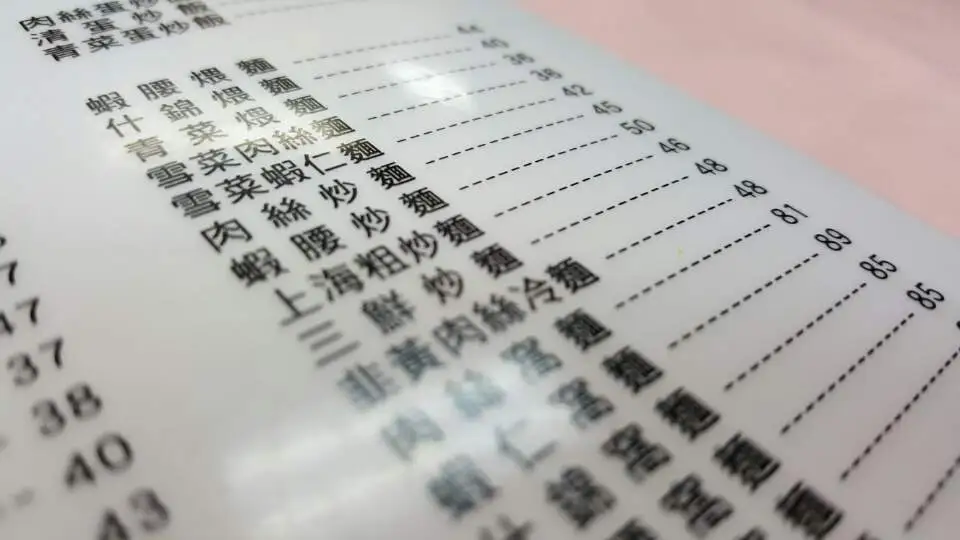 肉絲蛋炒飯
清蛋炒飯
青菜蛋炒飯
蝦腰煨麵 44
什錦煨麵 40
青菜煨麵 36
雪菜肉絲麵 38
雪菜蝦仁麵 42
肉絲炒麵 45
蝦腰炒麵 50
上海粗炒麵 46
三鮮炒麵 48
韭黃肉絲冷麵 48
肉絲窩麵 81
蝦仁窩麵 89
什錦窩麵 85
窩麵 85
麵
47
37
38
40
43